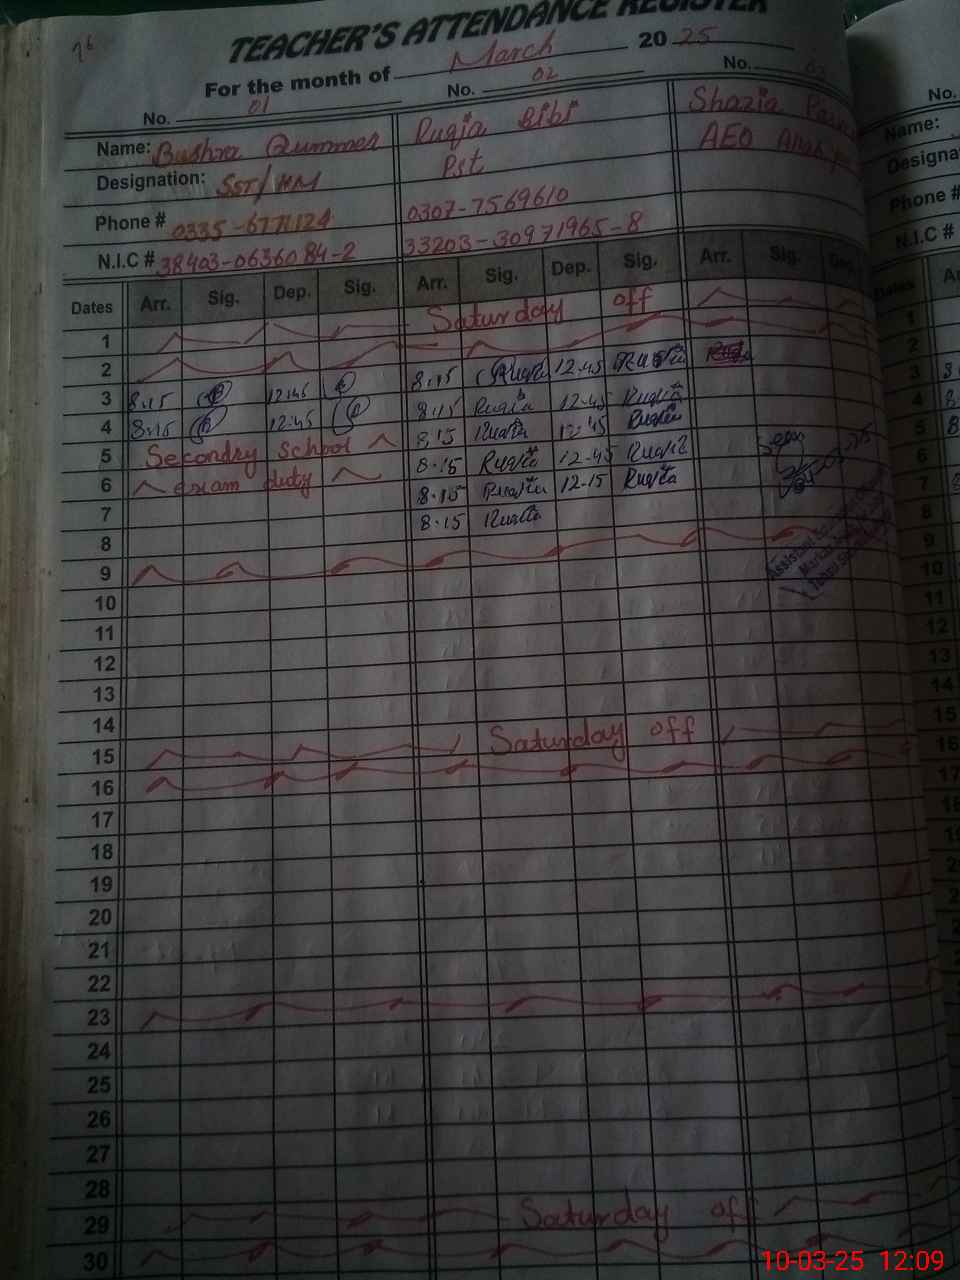 76
TEACHER'S ATTENDANCE REGISTER
For the month of March 2025
No. 01 No. 02 No. 03 No.
Name: Bushra Qummer Ruqia Bibi Shazia Name:
Designation: SST/HM Pst AEO Designa
Phone # 0335-6771124 0307-7569610 Phone #
N.I.C # 38403-0636084-2 33203-30971965-8 N.I.C #
Dates Arr. Sig. Dep. Sig. Arr. Sig. Dep. Sig. Arr. Sig. Dep. Dates
1 Saturday off 1
2 2
3 8.15 12:45 8.15 Ruqia 12.45 Ruqia 3
4 8.15 12.45 8.15 Ruqia 12-45 Ruqia 4
5 Secondry School 8.15 Ruqia 12.45 Ruqia 5
6 exam duty 8.15 Ruqia 12-45 Ruqia 6
7 8.15 Ruqia 12-15 Ruqia 7
8 8.15 Ruqia 8
9 9
10 10
11 11
12 12
13 13
14 14
15 Saturday off 15
16 16
17 17
18
19
20
21
22
23
24
25
26
27
28
29 Saturday off
30
10-03-25 12:09